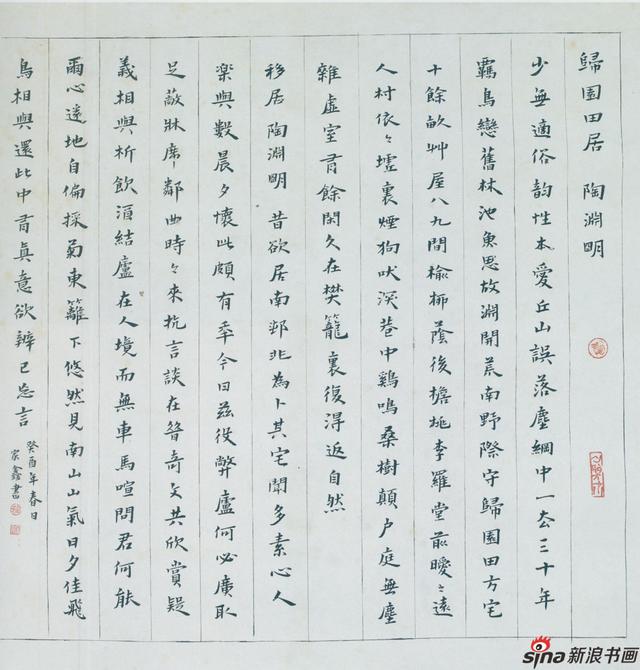 歸園田居 陶淵明
少無適俗韵性本愛丘山誤落塵網中一去三十年
羈鳥戀舊林池魚思故淵開荒南野際守歸園田方宅
十餘畝艸屋八九間榆柳蔭後檐桃李羅堂前曖々遠
人村依々墟裏煙狗吠深巷中鷄鳴桑樹顛户庭無塵
雜虛室有餘閑久在樊籠裏復得返自然
移居 陶淵明 昔欲居南邨非為卜其宅聞多素心人
樂與數晨夕懷此頗有年今日兹役弊廬何必廣取
足蔽牀席鄰曲時々來抗言談在昔奇文共欣賞疑
義相與析飲酒結廬在人境而無車馬喧問君何能
爾心遠地自偏採菊東籬下悠然見南山山氣日夕佳飛
鳥相與還此中有真意欲辨已忘言
癸酉年春日
家鑫書
sina新浪书画